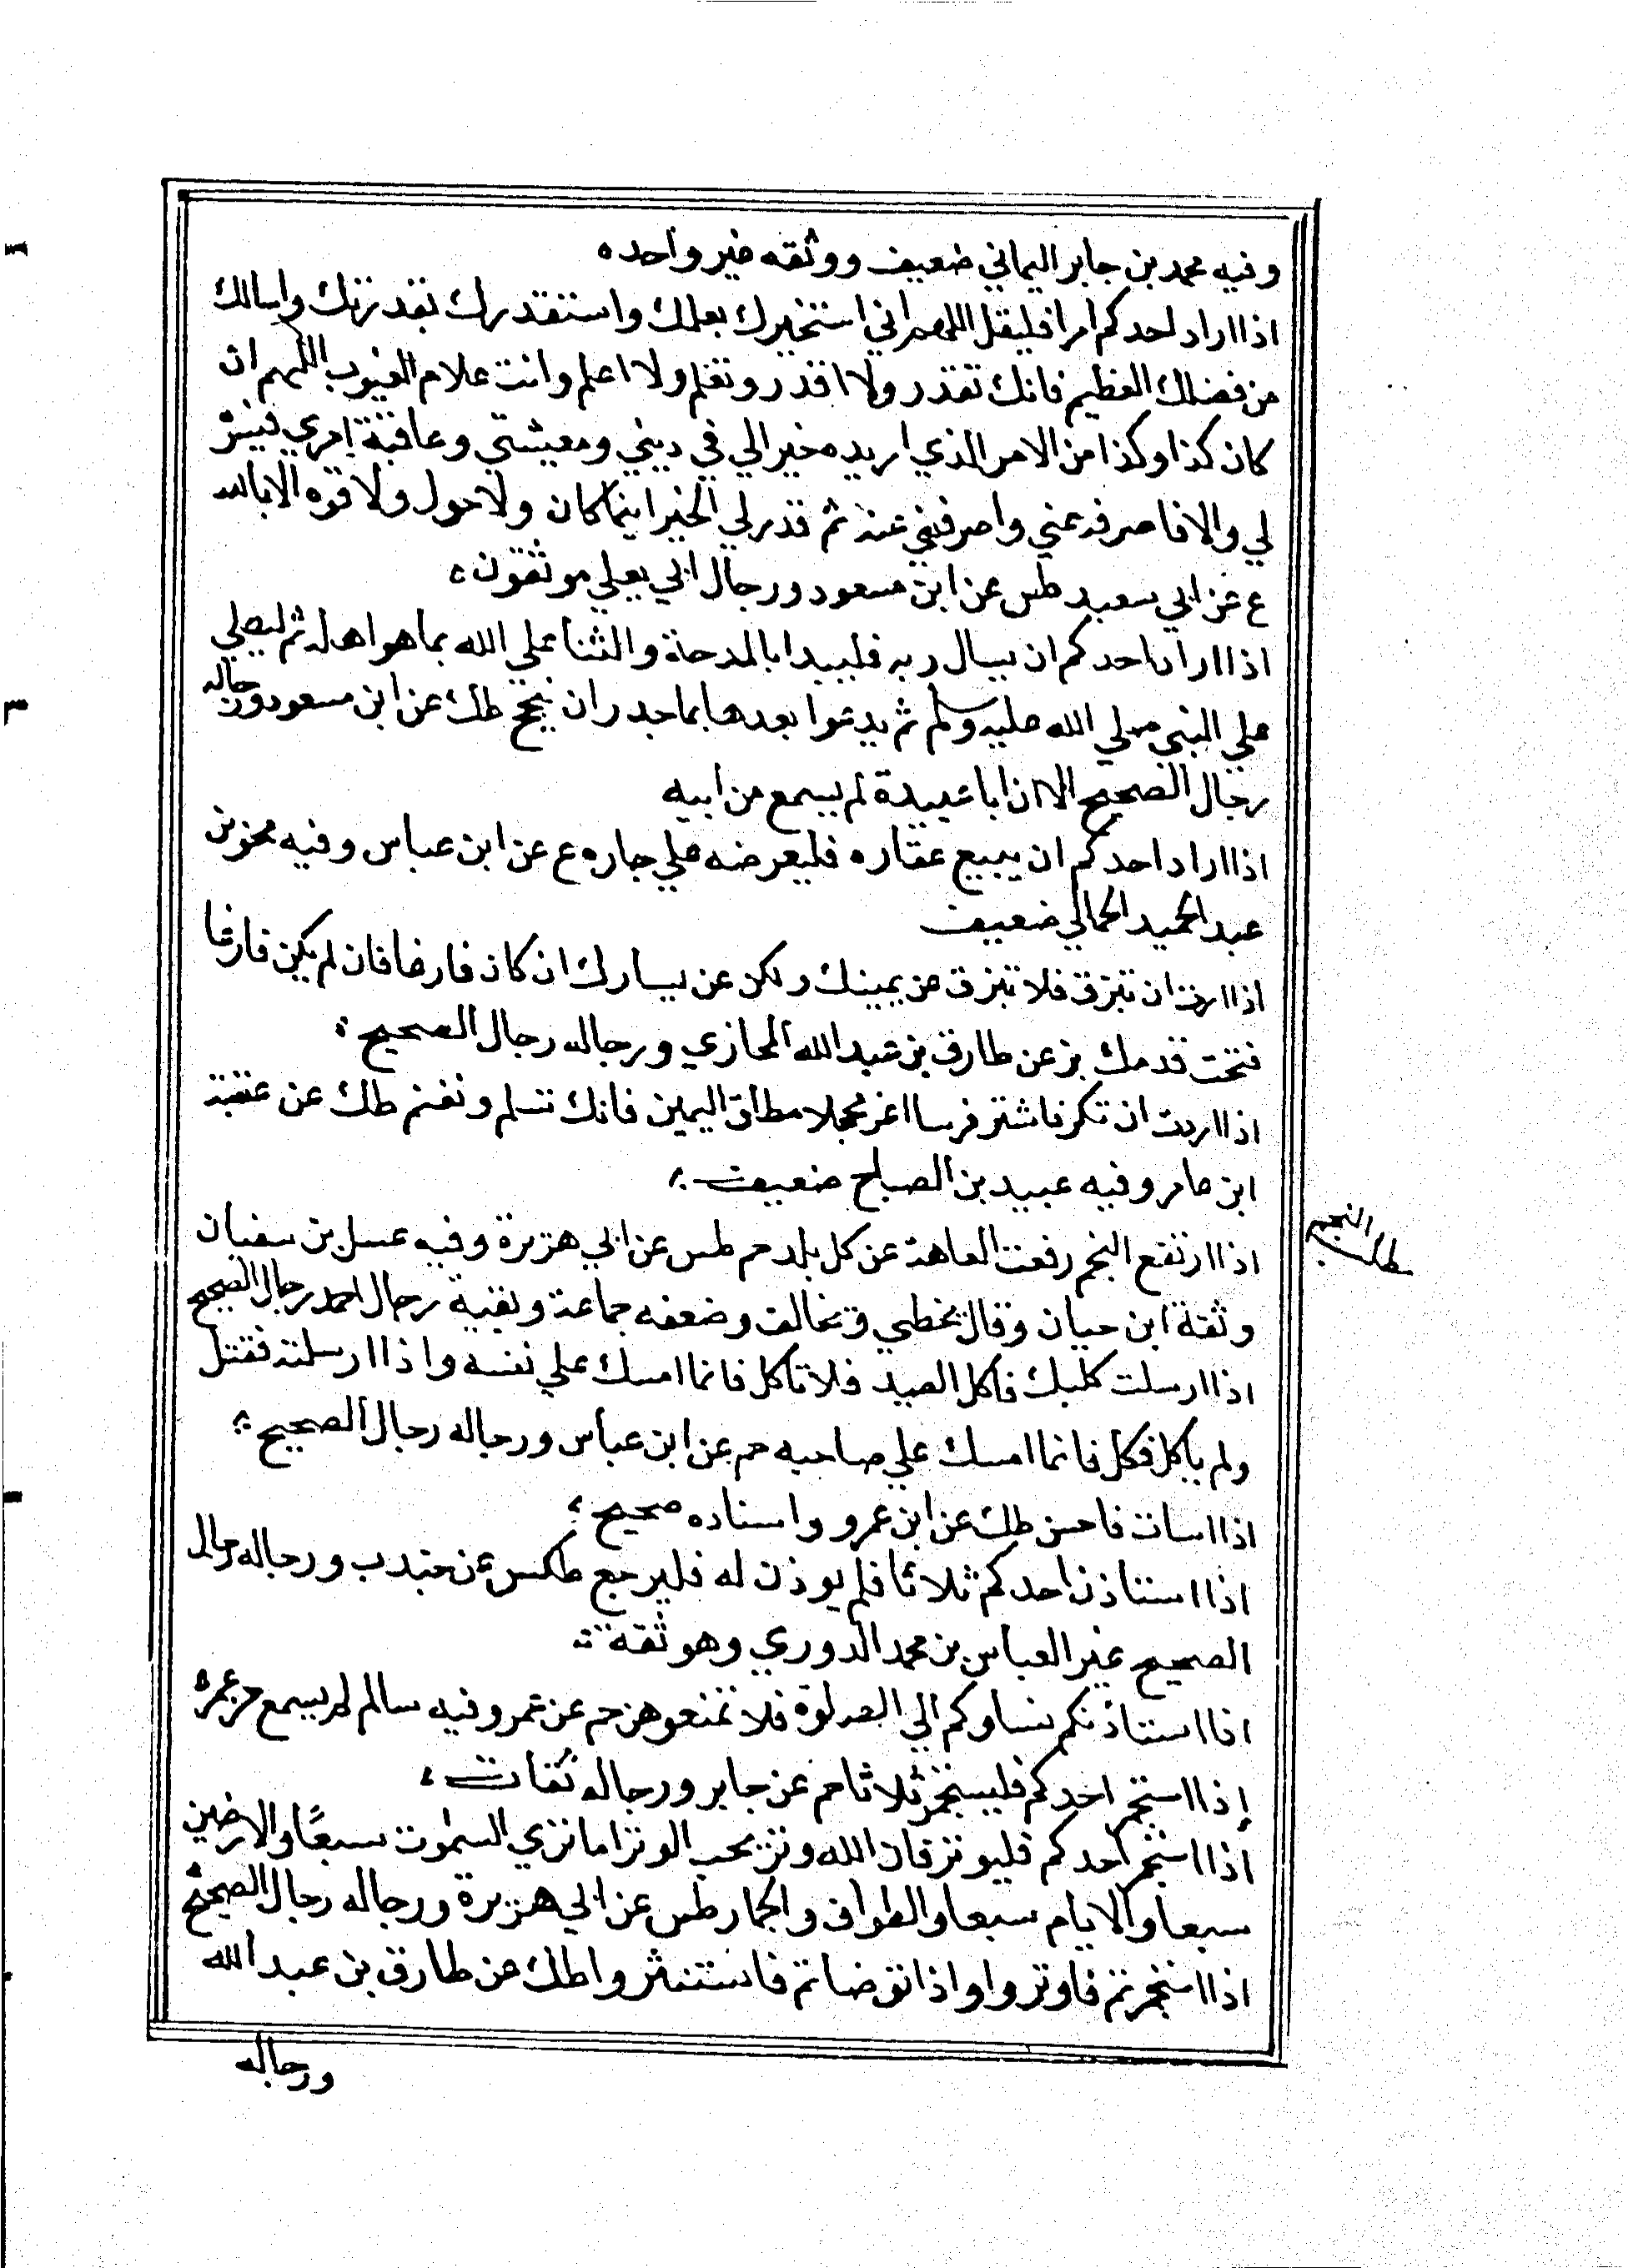 وفيه محمد بن جابر اليماني ضعيف ووثقه غير واحد ه
اذا اراد احدكم امرا فليقل اللهم اني استخيرك بعلمك واستقدرك بقدرتك واسالك
من فضلك العظيم فانك تقدر ولا اقدر وتعلم ولا اعلم وانت علام الغيوب اللهم ان
كان كذا وكذا من الامر الذي اريده خيرا لي في ديني ومعيشتي وعاقبة امري فيسر
لي والا فاصرفه عني واصرفني عنه ثم قدر لي الخير اينما كان ولا حول ولا قوه الا بالله
ع عن ابي سعيد طس عن ابن مسعود ورجال ابي يعلي موثقون
اذا اراد احدكم ان يسال ربه فليبدا بالمدحة والثنا علي الله بما هو اهله ثم ليصلي
علي النبي صلي الله عليه وسلم ثم يدعوا بعدها بما جدر ان ينجح طك عن ابن مسعود ورجاله
رجال الصحيح الا ان ابا عبيدة لم يسمع من ابيه
اذا اراد احدكم ان يبيع عقاره فليعرضه علي جاره ع عن ابن عباس وفيه بن
عبد الحميد الحمالي ضعيف
اذا اردت ان تبزق فلا تبزق عن يمينك ولكن عن يسارك ان كان فارغا فان لم يكن فارغا
فتحت قدمك بز عن طارق بن عبد الله المحازي ورجاله رجال الصحيح
اذا اردت ان تكر فاشتر فرسا اغر محجلا مطلق اليمين فانك تسلم وتغنم طك عن عقبة
ابن عامر وفيه عبيد بن الصباح ضعيف
اذا ارتفع النجم رفعت العاهة عن كل بلد حم طس عن ابي هريرة وفيه عسل بن سفيان
وثقة ابن حبان وقال يخطي ويخالف وضعفه جماعة وبقية رجال احمد رجال الصحيح
اذا ارسلت كلبك فاكل الصيد فلا تاكل فانما امسك علي نفسه واذا ارسلته فقتل
ولم ياكل فكل فانما امسك علي صاحبه حم عن ابن عباس ورجاله رجال الصحيح
اذا اسات فاحسن طك عن ابن عمرو واسناده صحيح
اذا استاذن احدكم ثلاثا فلم يوذن له فليرجع طكس عن جندب ورجاله رجال
الصحيح غير العباس بن محمد الدوري وهو ثقة
اذا استاذنكم نساوكم الي الصلوة فلا تمنعوهن حم عن عمر وفيه سالم لم يسمع من عمر
إذا استجمر احدكم فليستجمر ثلاثا حم عن جابر ورجاله ثقات
اذا استجمر احدكم فليوتر فان الله وتر يحب الوتر اما تري السموت سبعًا والارضين
سبعا والايام سبعا والطواف والجمار طس عن ابي هريرة ورجاله رجال الصحيح
اذا استجمرتم فاوتروا واذا توضاتم فاستنثروا طك عن طارق بن عبد الله
ورجاله
مطلب النجم